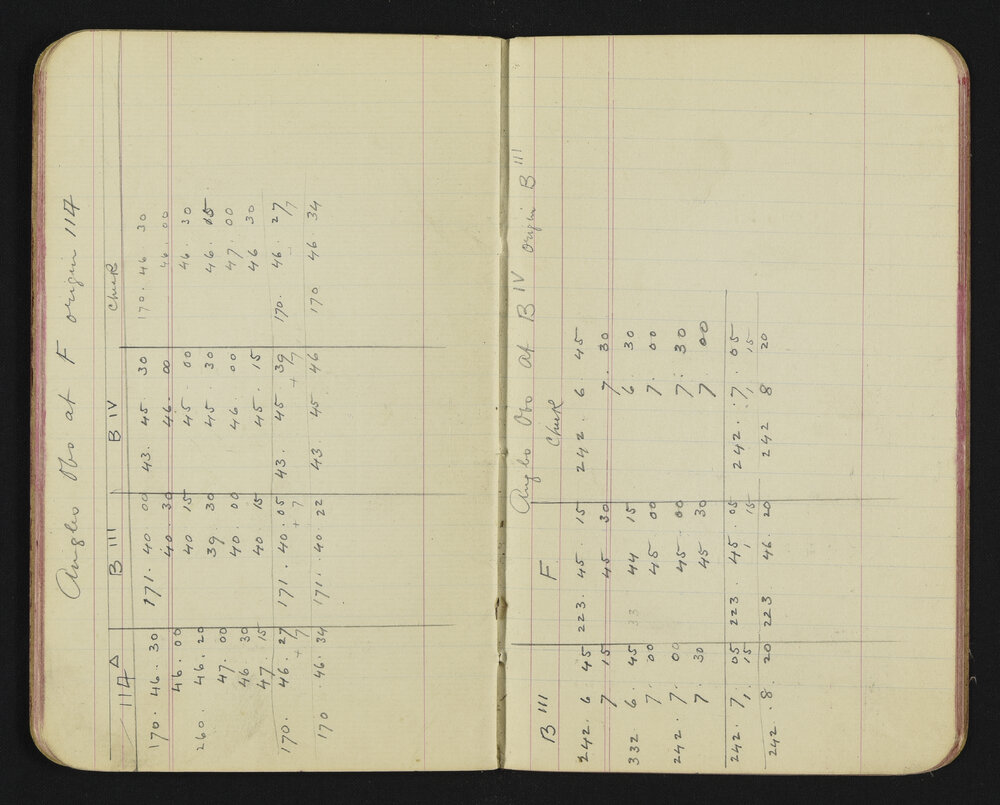 Angles Obs at F origin 114
114 △ B III B IV Check
170. 46. 30 171. 40 00 43. 45. 30 170. 46 30
46. 00 40. 30 46. 00 46. 00
260. 46. 20 40 15 45 00 46. 30
47. 00 39 30 45. 30 46. 15
46 30 40. 00 46. 00 47. 00
47. 15 40 15 45. 15 46 30
170. 46. 27 171. 40. 05 43. 45. 39 170. 46. 27
+ 7 + 7 + 7 7
170 . 46. 34 171. 40 22 43. 45 46 170 46 34
Angles Obs at B IV origin B III
B III F Check
242. 6 45 223. 45. 15 242. 6. 45
7 15 45 30 7. 30
332 6. 45 33 44 15 6. 30
7. 00 45 00 7. 00
242. 7. 00 45. 00 7. 30
7. 30 45 30 7. 00
242. 7. 05 223. 45. 05 242. 7. 05
1. 15 1 15 1. 15
242. 8. 20 223 46 20 242 8 20